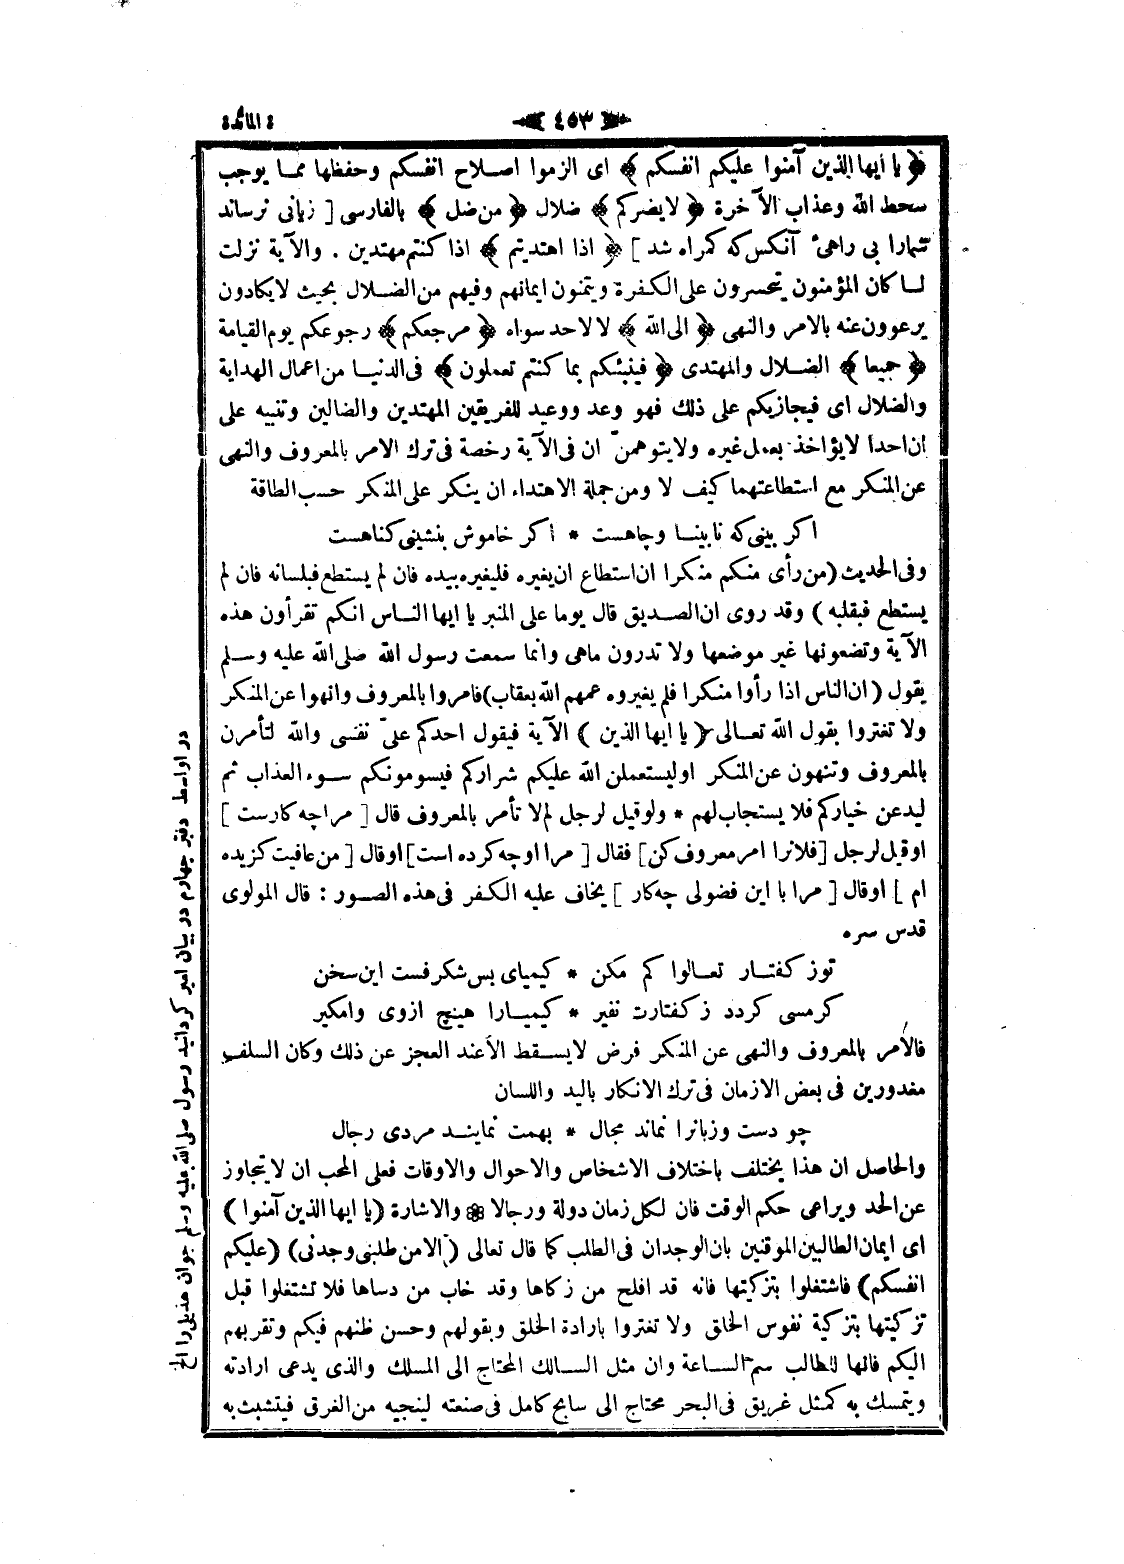 ﴿ المائدة ﴾
٤٥٣
﴿ يا ايها الذين آمنوا عليكم انفسكم ﴾ اى الزموا اصلاح انفسكم وحفظها مما يوجب
سخط الله وعذاب الآخرة ﴿ لايضركم ﴾ ضلال ﴿ من ضل ﴾ بالفارسى [ زيانى نرساند
شمارا بى راهئ آنكس كه كمراه شد ] ﴿ اذا اهتديتم ﴾ اذا كنتم مهتدين . والآية نزلت
لما كان المؤمنون يتحسرون على الكفرة ويتمنون ايمانهم وفيهم من الضلال بحيث لايكادون
يرعوون عنه بالامر والنهى ﴿ الى الله ﴾ لا لاحد سواه ﴿ مرجعكم ﴾ رجوعكم يوم القيامة
﴿ جميعا ﴾ الضلال والمهتدى ﴿ فينبئكم بما كنتم تعملون ﴾ فى الدنيا من اعمال الهداية
والضلال اى فيجازيكم على ذلك فهو وعد ووعيد للفريقين المهتدين والضالين وتنبيه على
ان احدا لايؤاخذ بعمل غيره ولايتوهمنّ ان فى الآية رخصة فى ترك الامر بالمعروف والنهى
عن المنكر مع استطاعتهما كيف لا ومن جملة الاهتداء ان ينكر على المنكر حسب الطاقة
اكر بينى كه نابينا وچاهست * اكر خاموش بنشينى كناهست
وفى الحديث (من رأى منكم منكرا ان استطاع ان يغيره فليغيره بيده فان لم يستطع فبلسانه فان لم
يستطع فبقلبه ) وقد روى ان الصديق قال يوما على المنبر يا ايها الناس انكم تقرأون هذه
الآية وتضعونها غير موضعها ولا تدرون ماهى وانما سمعت رسول الله صلى الله عليه وسلم
يقول ( ان الناس اذا رأوا منكرا فلم يغيروه عمهم الله بعقاب) فامروا بالمعروف وانهوا عن المنكر
ولا تغتروا بقول الله تعالى ﴿ يا ايها الذين ) الآية فيقول احدكم علىّ نفسى والله لتأمرن
بالمعروف وتنهون عن المنكر اوليستعملن الله عليكم شراركم فيسومونكم سوء العذاب ثم
ليدعن خياركم فلا يستجاب لهم * ولوقيل لرجل لم لا تأمر بالمعروف قال [ مراچه كارست ]
اوقيل لرجل [فلانرا امر معروف كن] فقال [ مرا اوچه كرده است] اوقال [ من عافيت كزيده
ام ] اوقال [ مرا با اين فضولى چه كار ] يخاف عليه الكفر فى هذه الصور : قال المولوى
قدس سره
توز كفتار تعالوا كم مكن * كيمياى بس شكرفست اين سخن
كرمسى كردد ز كفتارت نفير * كيميارا هيچ ازوى وامكير
فالأمر بالمعروف والنهى عن المنكر فرض لايسقط الا عند العجز عن ذلك وكان السلف
معذورين فى بعض الازمان فى ترك الانكار باليد واللسان
چو دست وزبانرا نماند مجال * بهمت نمايند مردى رجال
والحاصل ان هذا يختلف باختلاف الاشخاص والاحوال والاوقات فعلى المحب ان لايتجاوز
عن الحد ويراعى حكم الوقت فان لكل زمان دولة ورجالا ❁ والاشارة (يا ايها الذين آمنوا )
اى ايمان الطالبين الموقنين بان الوجدان فى الطلب كما قال تعالى ( الا من طلبنى وجدنى) (عليكم
انفسكم) فاشتغلوا بتزكيتها فانه قد افلح من زكاها وقد خاب من دساها فلا تشتغلوا قبل
تزكيتها بتزكية نفوس الخلق ولا تغتروا بارادة الخلق وبقولهم وحسن ظنهم فيكم وتقربهم
اليكم فانها للطالب سم الساعة وان مثل السالك المحتاج الى المسلك والذى يدعى ارادته
ويتمسك به كمثل غريق فى البحر محتاج الى سابح كامل فى صنعته لينجيه من الغرق فيتشبث به
در اواسط دفتر چهارم در بيان امير كردانيد رسول صلى الله عليه وسلم جوان هذيلى را الخ